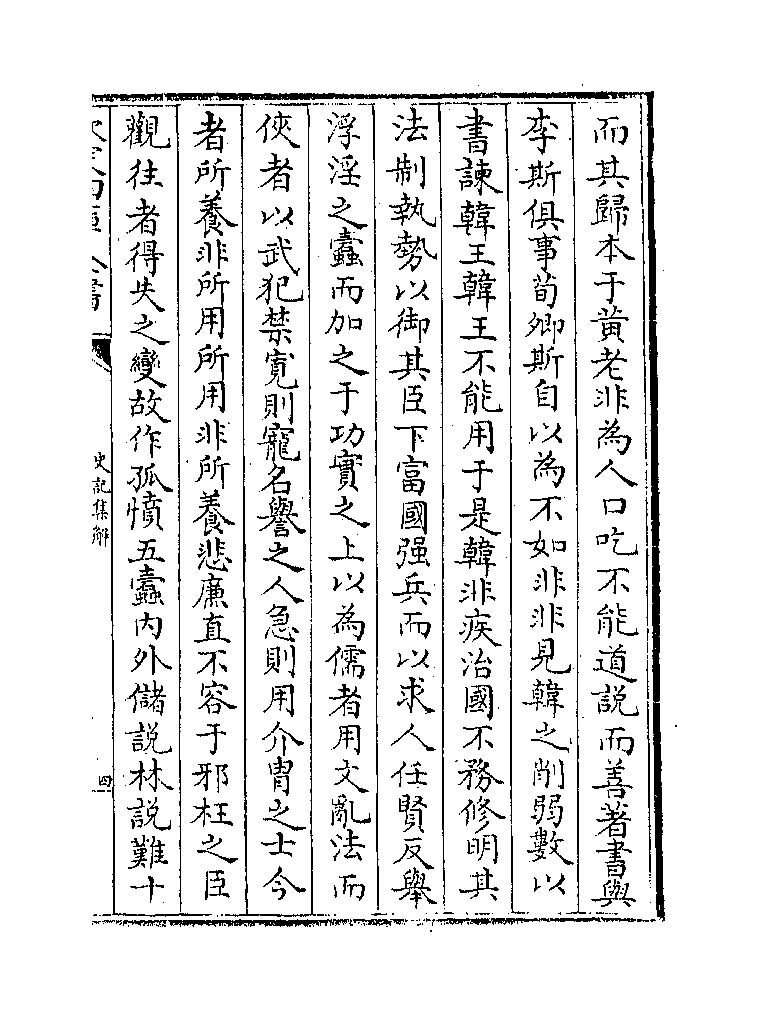 而其歸本于黄老非為人口吃不能道説而善著書與
李斯俱事荀卿斯自以為不如非非見韓之削弱數以
書諫韓王韓王不能用于是韓非疾治國不務修明其
法制執勢以御其臣下富國强兵而以求人任賢反舉
浮淫之蠧而加之于功實之上以為儒者用文亂法而
俠者以武犯禁寛則寵名譽之人急則用介胄之士今
者所養非所用所用非所養悲廉直不容于邪枉之臣
觀往者得失之變故作孤憤五蠧内外儲説林説難十
史記集解
四